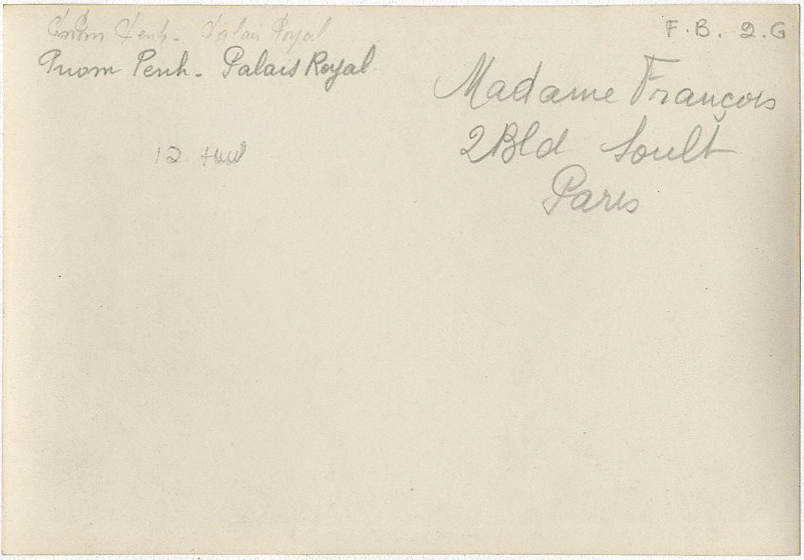 Pnom Penh - Palais Royal
F. B. 2. G
Pnom Penh - Palais Royal.
Madame François
2 Bld Soult
Paris
12